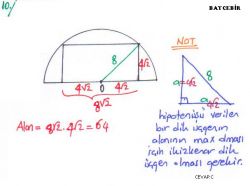 BATCEBİR
10)
8
4√2
0
4√2 4√2
8√2
Alan = 8√2 . 4√2 = 64
NOT
a=4√2
8
a 4√2
hipotenüsü verilen
bir dik üçgenin
alanının max olması
için ikizkenar dik
üçgen olması gerekir.
CEVAP:C